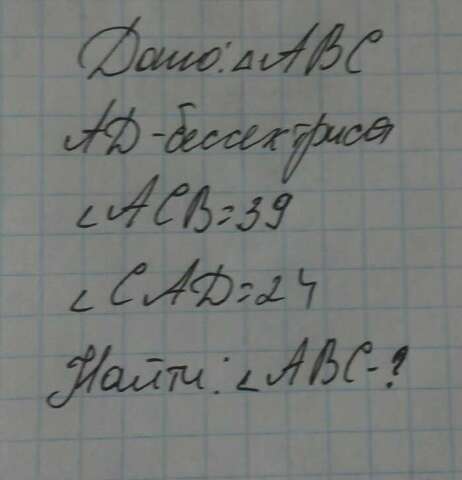 Дано: △ABC
AD-бессектриса
∠ACB=39
∠CAD=24
Найти: ∠ABC-?